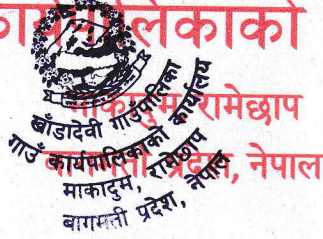 कार्यपालिकाको
माकादुम, रामेछाप
बागमती प्रदेश, नेपाल
खाँडादेवी गाउँपालिका
गाउँ कार्यपालिकाको कार्यालय
माकादुम, रामेछाप
बागमती प्रदेश, नेपाल